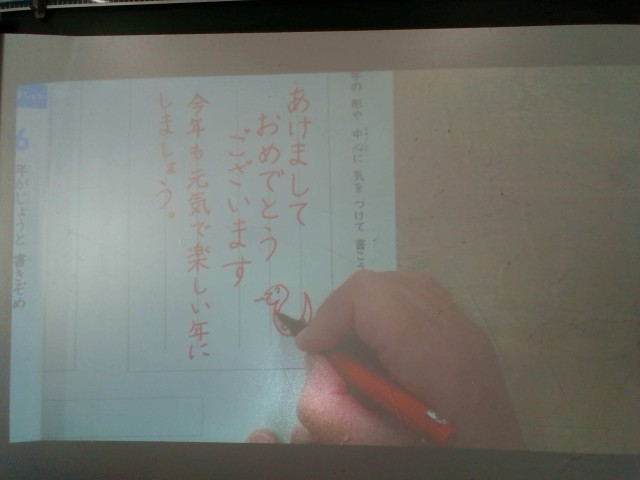 字の形や中心に気をつけて書こう
あけまして
おめでとう
ございます
今年も元気で楽しい年に
しましょう。
6 年がじょうと書きぞめ